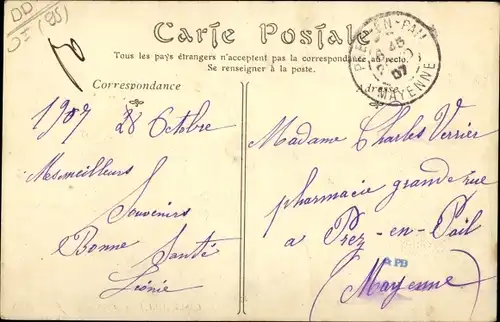 DD
(95)
Carte Postale
Tous les pays étrangers n'acceptent pas la correspondance au recto.
Se renseigner à la poste.
Correspondance
Adresse
PRÉ-EN-PAIL
MAYENNE
07
1907 28 Octobre
Mes meilleurs
Souvenirs
Bonne Santé
Léonie
Madame Charles Verrier
pharmacie grande rue
a Prez-en-Pail
APD
(Mayenne)